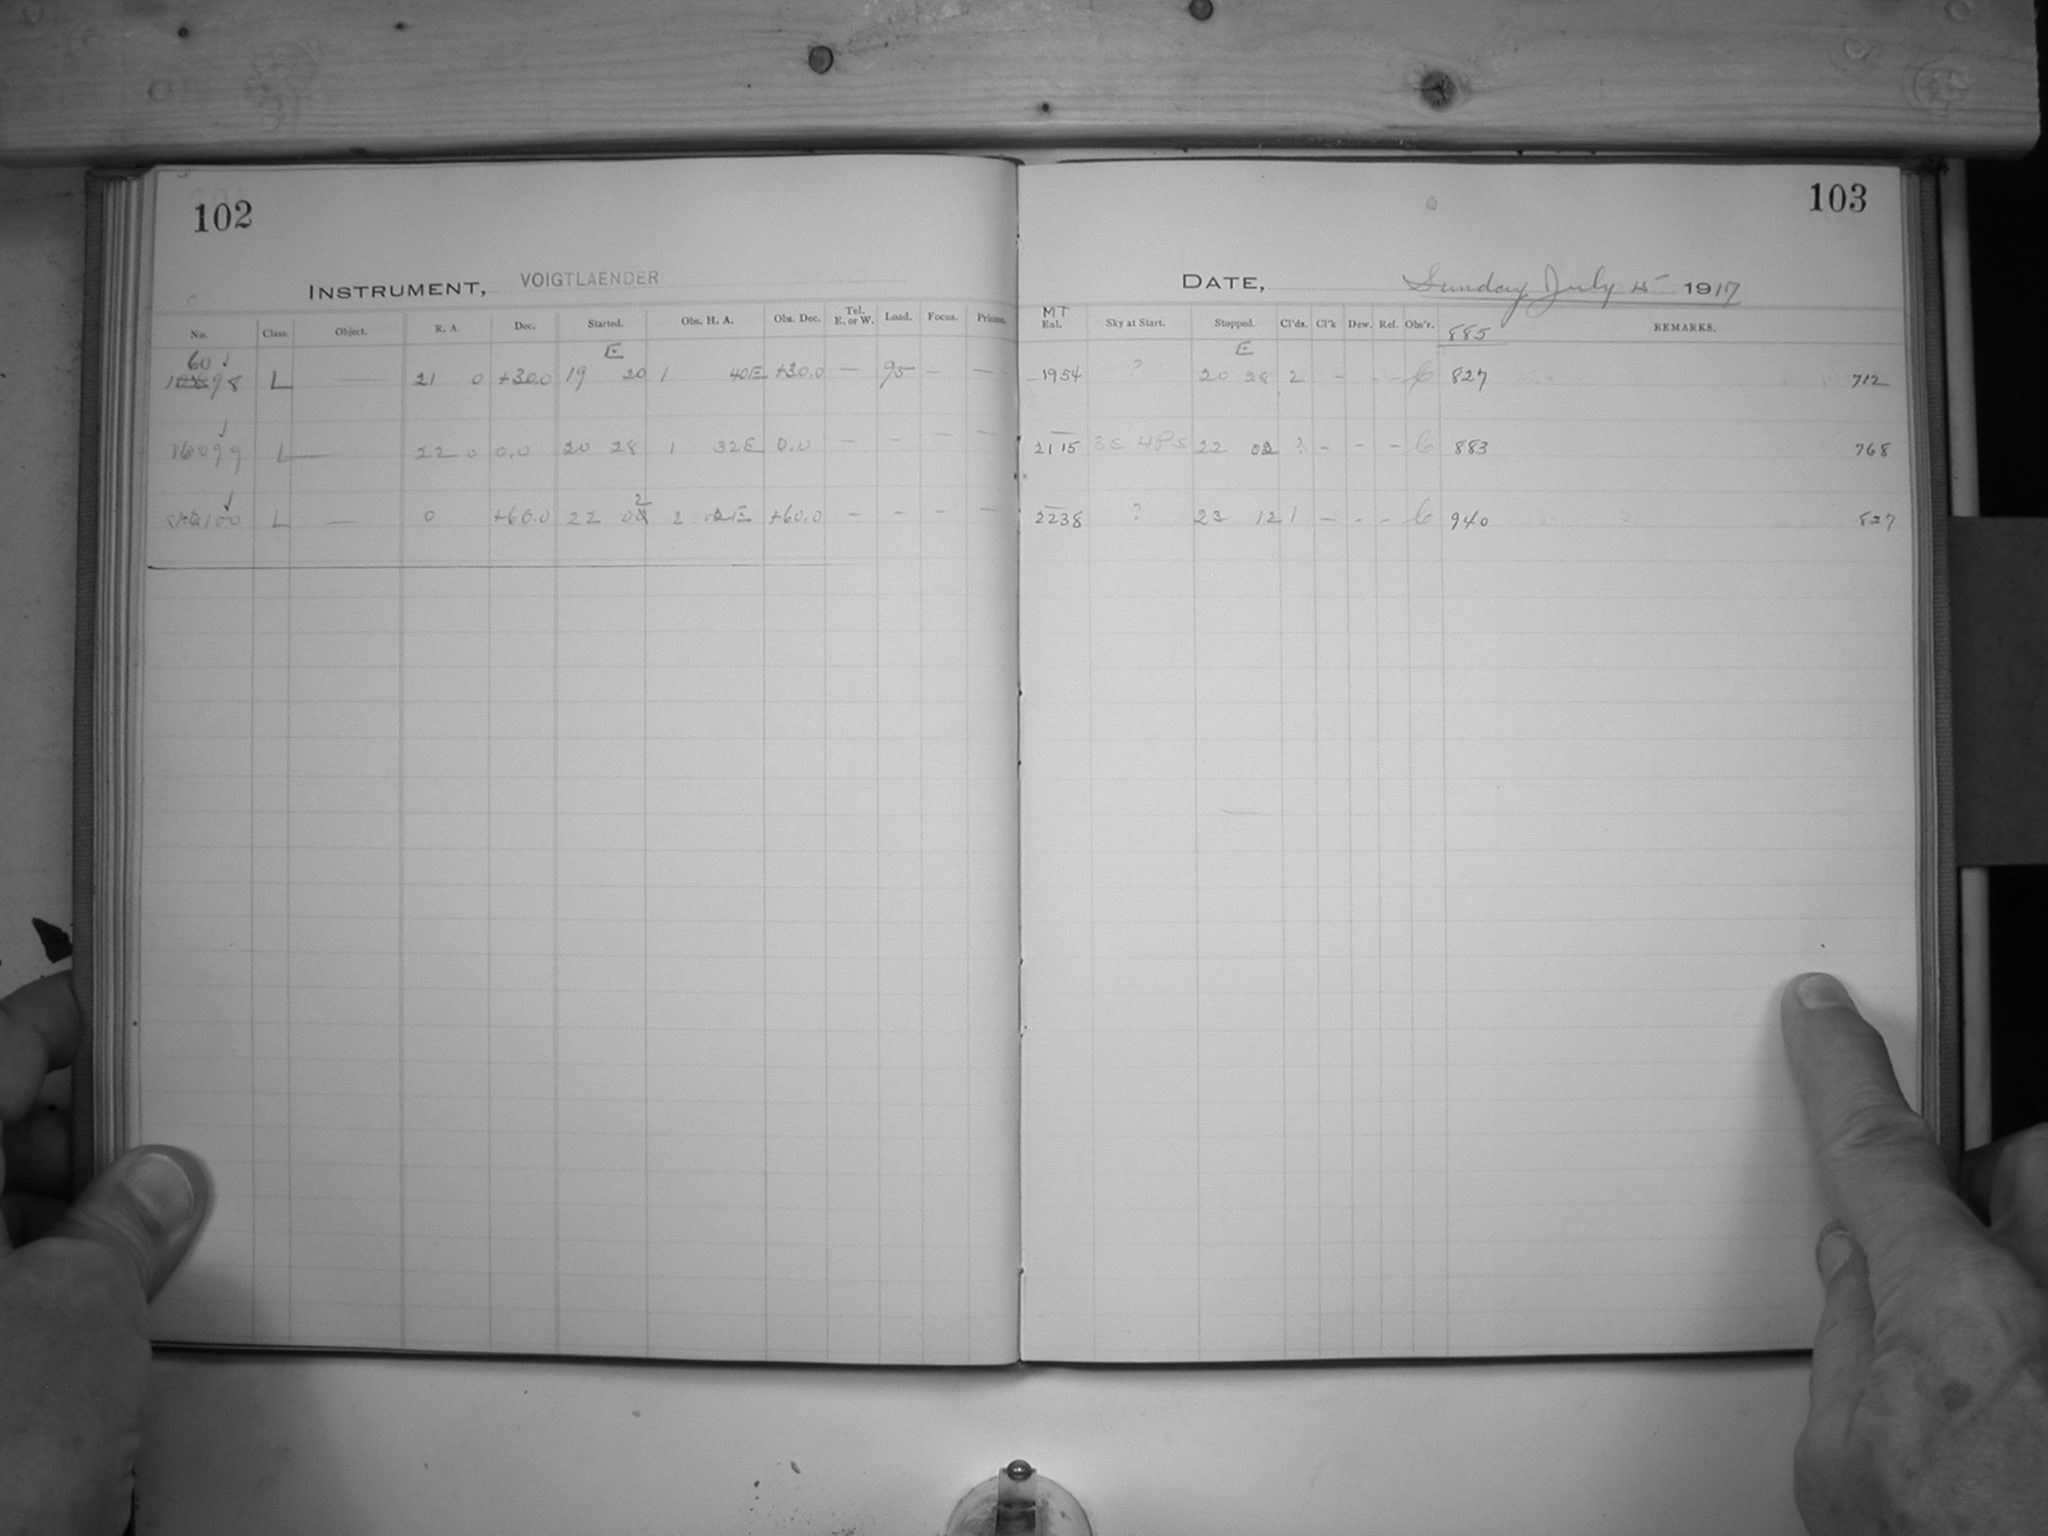 102
INSTRUMENT, VOIGTLAENDER
No. Class. Object. R. A. Dec. Started. Obs. H. A. Obs. Dec. Tel. E. or W. Load. Focus. Prisms.
E
60
98 L — 21 0 +30.0 19 20 1 40E +30.0 — 95 — —
16099 L — 22 0 0.0 20 28 1 32E 0.0 — — — —
2
100 L — 0 +60.0 22 0 2 2E +60.0 — — — —
103
DATE, Sunday July 15 1917
MT
Eal. Sky at Start. Stopped. Cl'ds. Cl'k Dew. Ref. Obs'r. 885 REMARKS.
E
1954 ? 20 28 2 - - - C 827 712
2115 3s 4Ps 22 02 ? - - - C 883 768
2238 ? 23 12 1 - - - C 940 827